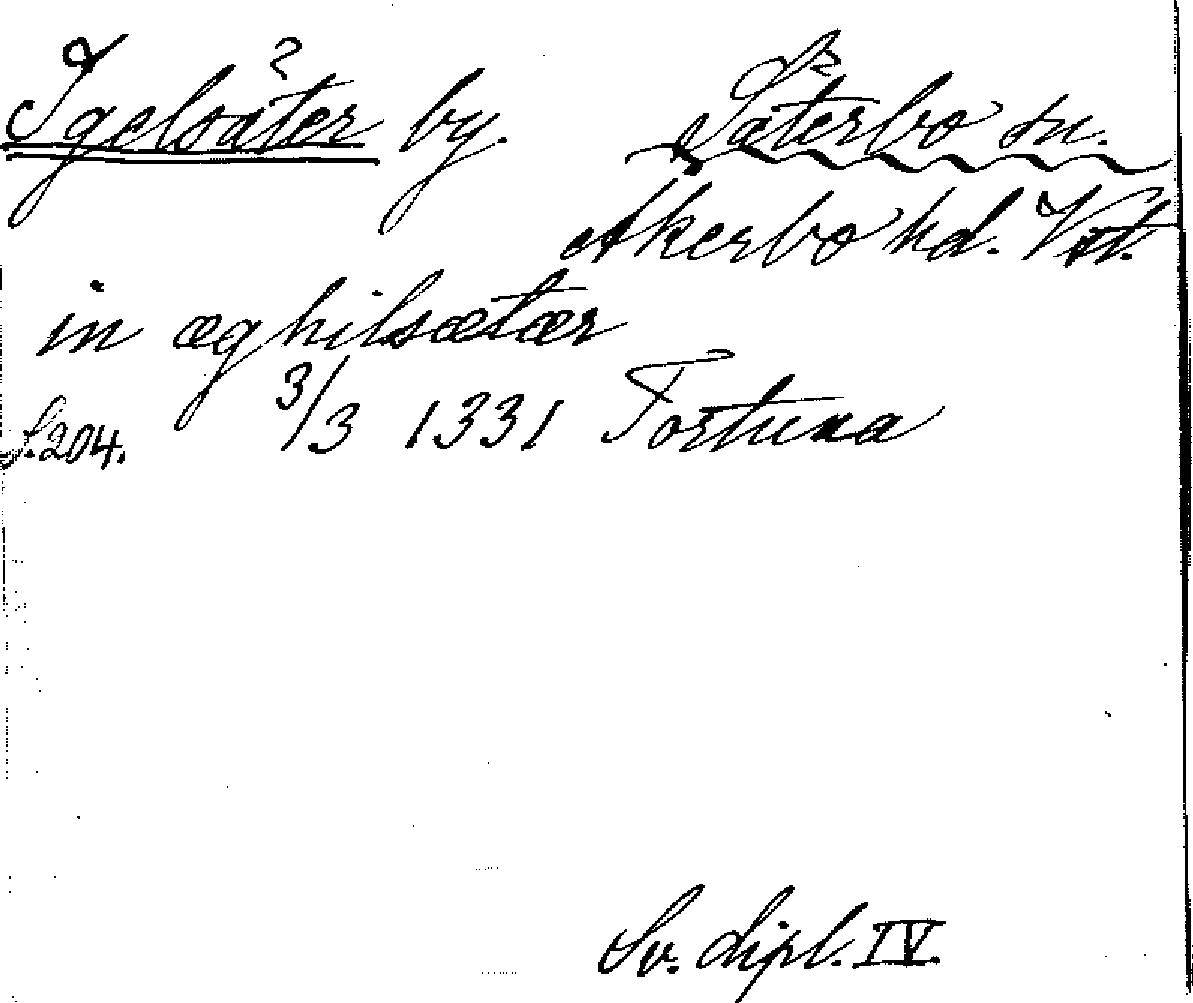 Igelsäter by. Säterbo sn.
Åkerbo hd. Vstl.
in æghilsætær
S. 204. 3/3 1331 Fortuna
Sv. dipl. IV.